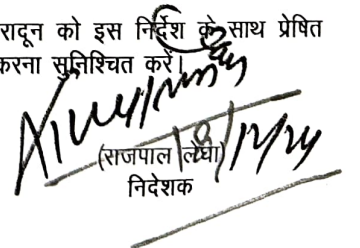 रादून को इस निर्देश के साथ प्रेषित
करना सुनिश्चित करें।
(राजपाल लेघा)
निदेशक